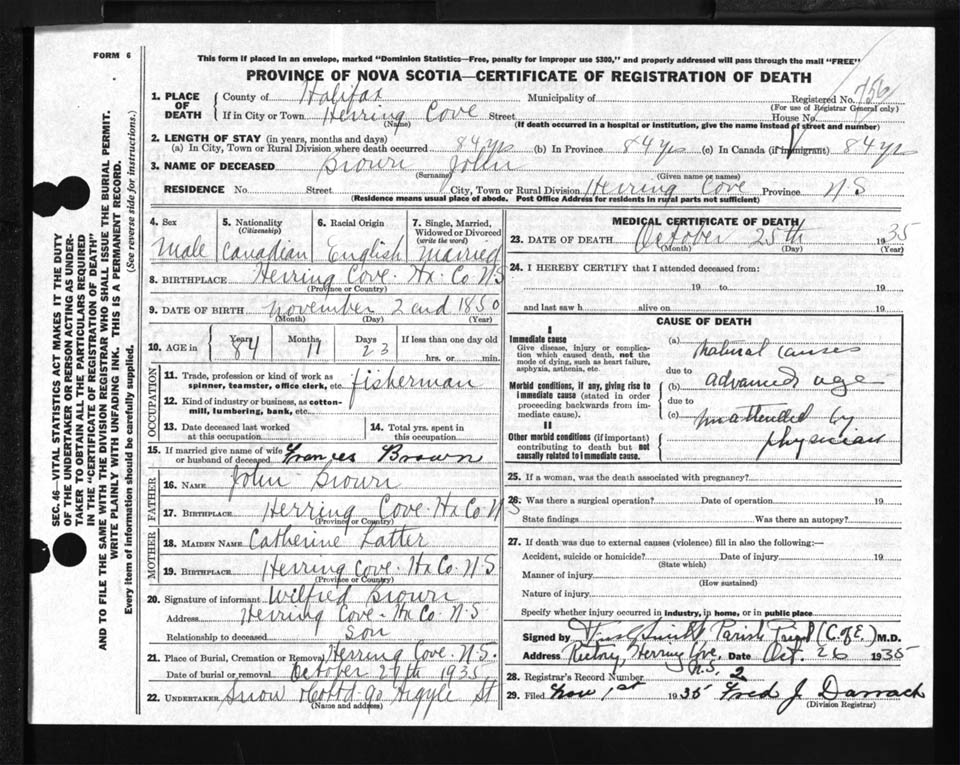 FORM 6
This form if placed in an envelope, marked "Dominion Statistics—Free, penalty for improper use $300," and properly addressed will pass through the mail "FREE"
PROVINCE OF NOVA SCOTIA—CERTIFICATE OF REGISTRATION OF DEATH
SEC. 46—VITAL STATISTICS ACT MAKES IT THE DUTY
OF THE UNDERTAKER OR PERSON ACTING AS UNDER-
TAKER TO OBTAIN ALL THE PARTICULARS REQUIRED
IN THE "CERTIFICATE OF REGISTRATION OF DEATH"
AND TO FILE THE SAME WITH THE DIVISION REGISTRAR WHO SHALL ISSUE THE BURIAL PERMIT.
WRITE PLAINLY WITH UNFADING INK. THIS IS A PERMANENT RECORD.
Every item of information should be carefully supplied. (See reverse side for instructions.)
1. PLACE OF DEATH
County of Halifax Municipality of Registered No. 756
(For use of Registrar General only)
If in City or Town Herring Cove Street House No.
(Name) (If death occurred in a hospital or institution, give the name instead of street and number)
2. LENGTH OF STAY (in years, months and days)
(a) In City, Town or Rural Division where death occurred 84 yrs (b) In Province 84 yrs (c) In Canada (if immigrant) 84 yr
3. NAME OF DECEASED Brown John
(Surname) (Given name or names)
RESIDENCE No. Street City, Town or Rural Division Herring Cove Province N S
(Residence means usual place of abode. Post Office Address for residents in rural parts not sufficient)
4. Sex 5. Nationality (Citizenship) 6. Racial Origin 7. Single, Married, Widowed or Divorced (write the word)
Male Canadian English Married
8. BIRTHPLACE Herring Cove. Hx. Co N S
(Province or Country)
9. DATE OF BIRTH November 2nd 1850
(Month) (Day) (Year)
10. AGE in Years 84 Months 11 Days 23 If less than one day old
hrs. or min.
OCCUPATION
11. Trade, profession or kind of work as spinner, teamster, office clerk, etc. fisherman
12. Kind of industry or business, as cotton-mill, lumbering, bank, etc.
13. Date deceased last worked at this occupation
14. Total yrs. spent in this occupation
15. If married give name of wife or husband of deceased Frances Brown
FATHER
16. NAME John Brown
17. BIRTHPLACE Herring Cove. Hx Co N S
(Province or Country)
MOTHER
18. MAIDEN NAME Catherine Latter
19. BIRTHPLACE Herring Cove. Hx Co. N. S
(Province or Country)
20. Signature of informant Wilfred Brown
Address Herring Cove - Hx Co. N. S
Relationship to deceased Son
21. Place of Burial, Cremation or Removal Herring Cove. N. S.
Date of burial or removal October 27th 1935
22. UNDERTAKER Snow & Co Ltd. 90 Argyle St
(Name and address)
MEDICAL CERTIFICATE OF DEATH
23. DATE OF DEATH October 25th 1935
(Month) (Day) (Year)
24. I HEREBY CERTIFY that I attended deceased from:
19 to 19
and last saw h alive on 19
CAUSE OF DEATH
I
Immediate cause
Give disease, injury or complication which caused death, not the mode of dying, such as heart failure, asphyxia, asthenia, etc.
(a) Natural causes
due to
Morbid conditions, if any, giving rise to immediate cause (stated in order proceeding backwards from immediate cause).
(b) advanced age
due to
(c) unattended by physician
II
Other morbid conditions (if important) contributing to death but not causally related to immediate cause.
25. If a woman, was the death associated with pregnancy?
26. Was there a surgical operation? Date of operation 19
State findings Was there an autopsy?
27. If death was due to external causes (violence) fill in also the following:—
Accident, suicide or homicide? Date of injury 19
(State which)
Manner of injury
(How sustained)
Nature of injury
Specify whether injury occurred in industry, in home, or in public place
Signed by Smith Parish Priest (C. of E.) M.D.
Address Rectory, Herring Cove, N.S. Date Oct. 26 1935
28. Registrar's Record Number 2
29. Filed Nov 1st 1935 Fred J. Darrach
(Division Registrar)